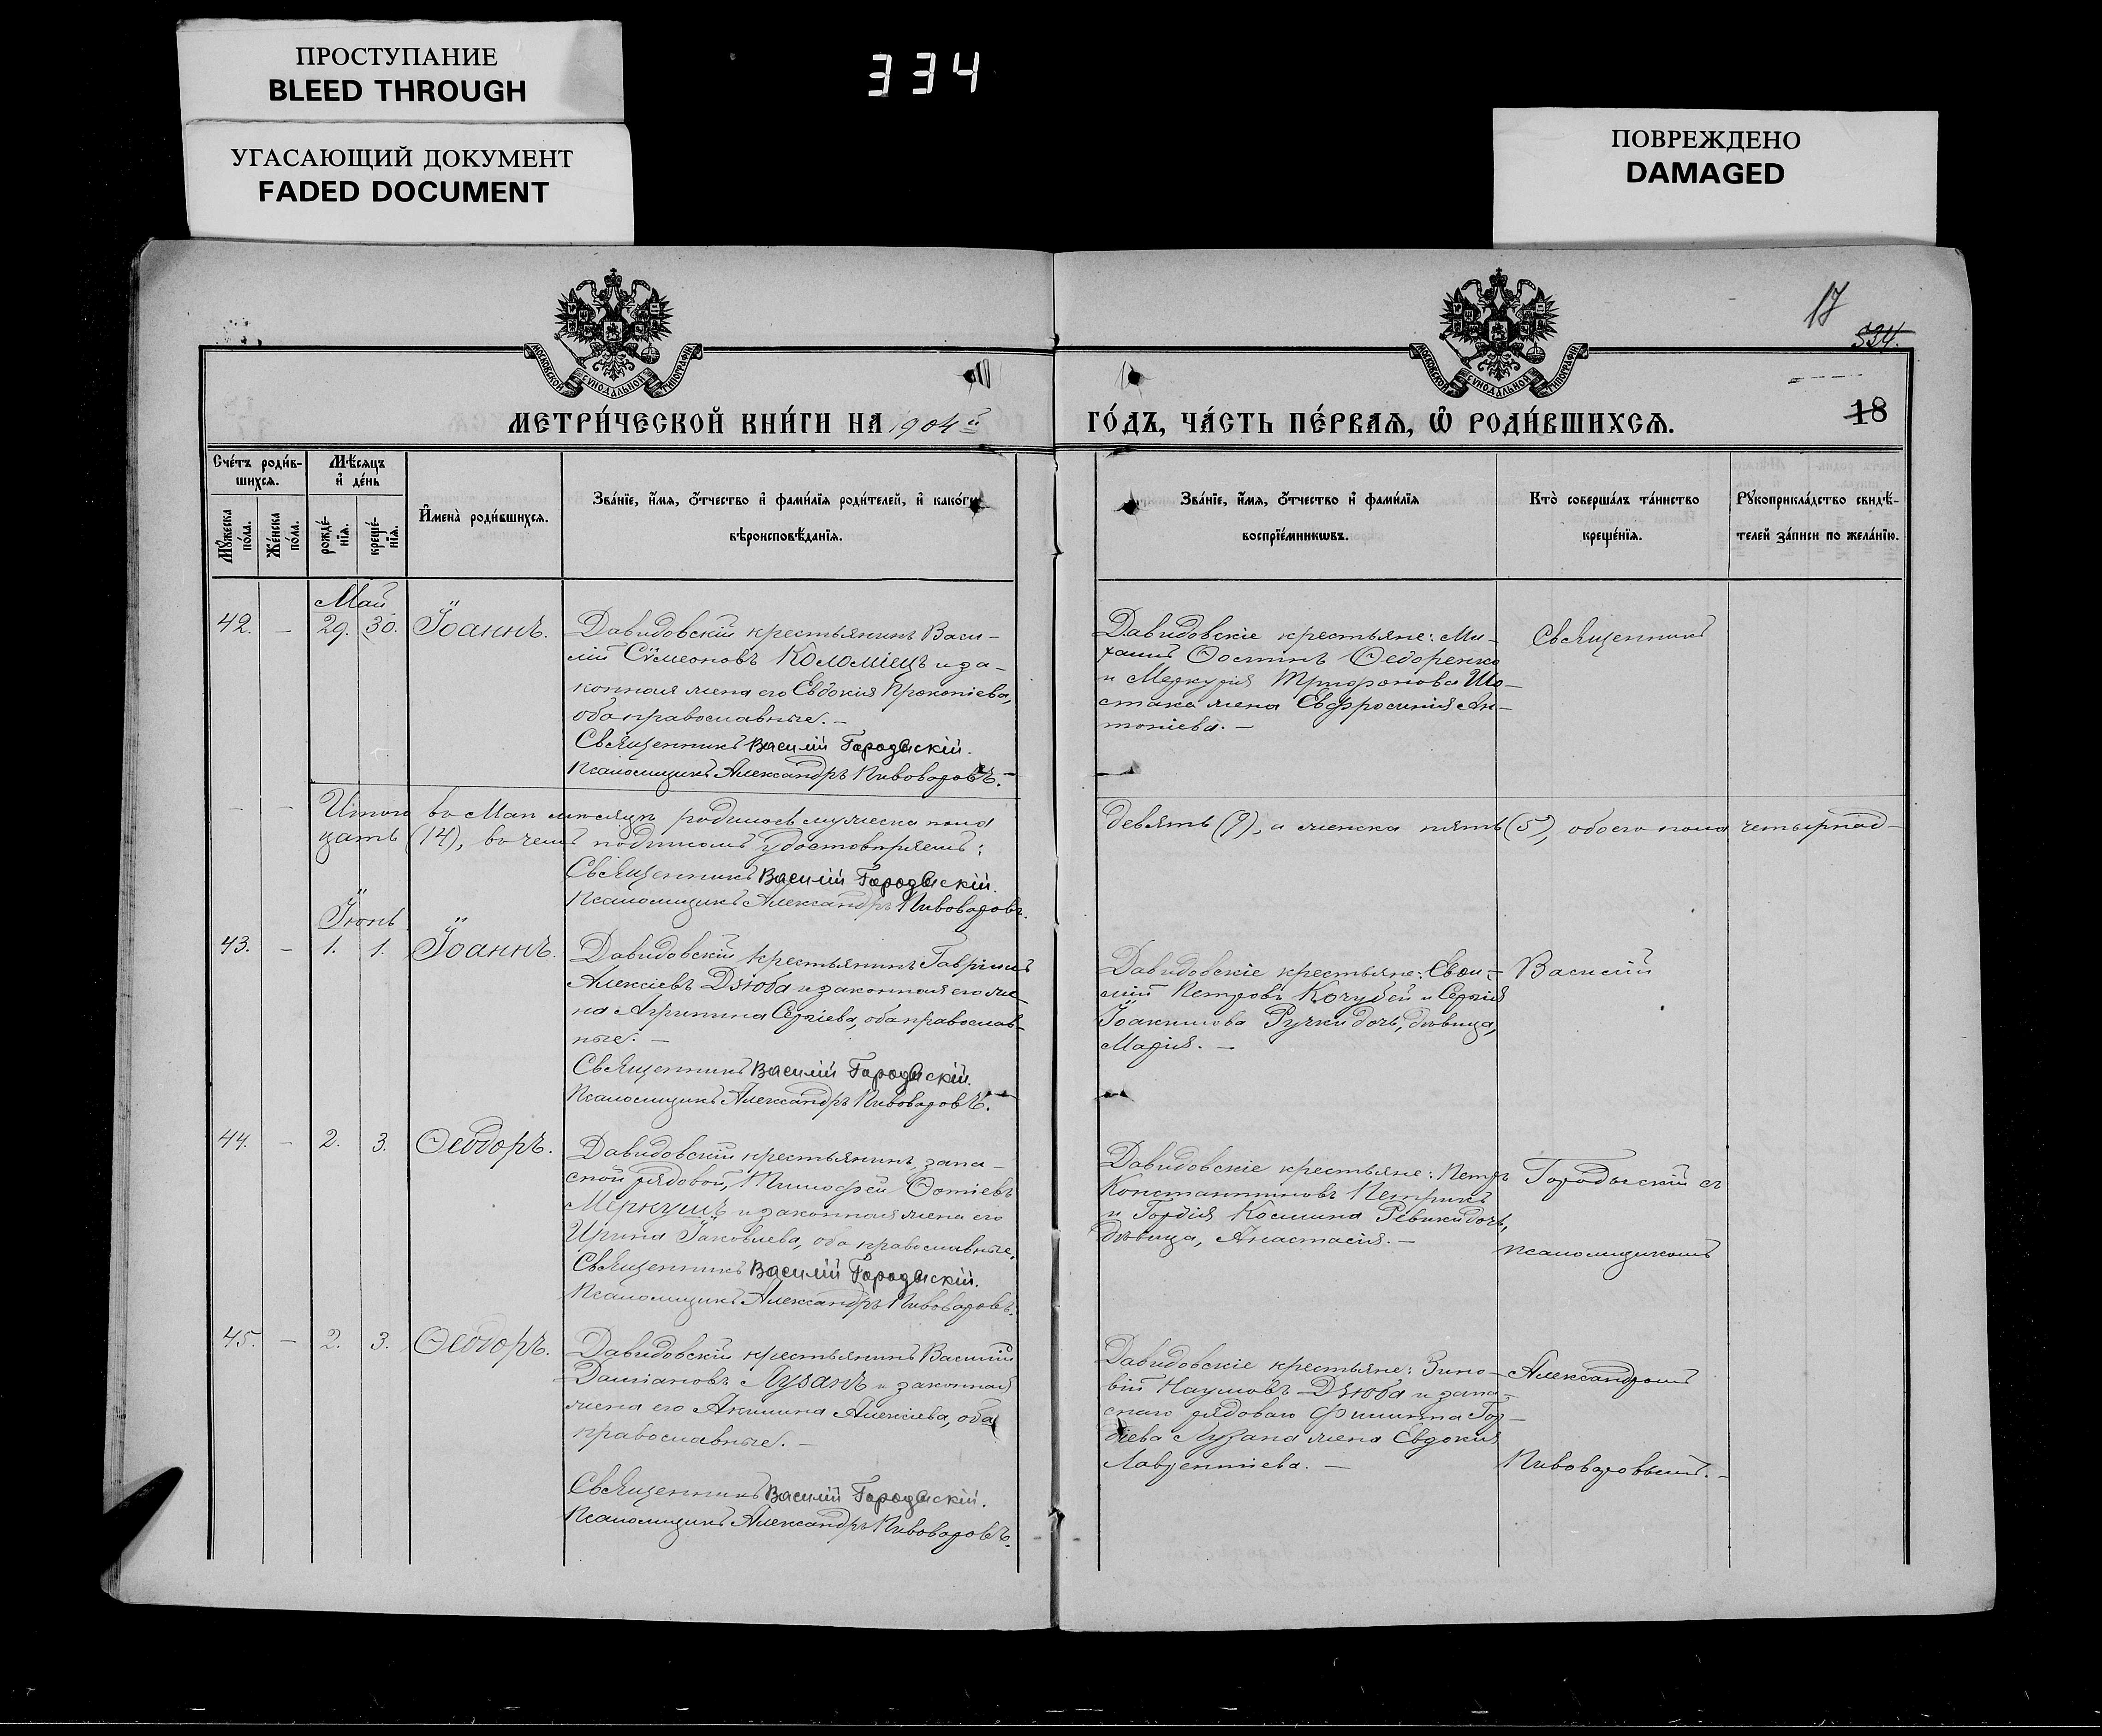 ПРОСТУПАНИЕ
BLEED THROUGH
УГАСАЮЩИЙ ДОКУМЕНТ
FADED DOCUMENT
334
ПОВРЕЖДЕНО
DAMAGED
17
334.
18
МОСКОВСКОЙ СѴНОДАЛЬНОЙ ТИПОГРАФІИ
МОСКОВСКОЙ СѴНОДАЛЬНОЙ ТИПОГРАФІИ
МЕТРИ́ЧЕСКОЙ КНИ́ГИ НА 1904й
ГО́ДЪ, ЧА́СТЬ ПЕ́РВАѦ, Ѽ РОДИ́ВШИХСѦ.
Сче́тъ роди́в-
шихся.
Мѣ́сяцъ
и҆ де́нь
Мꙋ́жеска
по́ла.
Же́нска
по́ла.
рожде́-
нїя.
креще́-
нїя.
И҆мена̀ роди́вшихся.
Зва́нїе, и҆́мя, ѻ҆́тчество и҆ фами́лїя роди́телей, и҆ како́гѡ
вѣроисповѣ́данїя.
Зва́нїе, и҆́мя, ѻ҆́тчество и҆ фами́лїя
воспрїе́мникѡвъ.
Кто̀ соверша́лъ та́инство
креще́нїя.
Рꙋкоприкла́дство свидѣ́-
телей за́писи по жела́нїю.
Май
42. — 29. 30. Іоаннъ.
Давидовскій крестьянинъ Васи-
лій Сѵмеоновъ Коломіецъ и за-
конная жена его Евдокія Прокопіева,
оба православные. —
Священникъ Василій Городыскій.
Псаломщикъ Александръ Пивоваровъ. —
Давидовскіе крестьяне: Ми-
хаилъ Ѳостинъ Ѳедоренко
и Меркурія Трифонова Шо-
стака жена Евфросинія Ан-
тоніева. —
Священникъ
— — Итого въ Маѣ мѣсяцѣ родилось мужеска пола девять (9), и женска пять (5), обоего пола четырнад-
цать (14), въ чемъ подписомъ удостовѣряемъ:
Священникъ Василій Городыскій.
Псаломщикъ Александръ Пивоваровъ.
Іюнь
43. — 1. 1. Іоаннъ.
Давидовскій крестьянинъ Гавріилъ
Алексіевъ Дзюба и законная его же-
на Агрипина Сергіева, оба православ-
ные. —
Священникъ Василій Городыскій.
Псаломщикъ Александръ Пивоваровъ. —
Давидовскіе крестьяне:
лій Петровъ Кочубей и Сергія
Іоакимова Ручки дочь, дѣвица,
Марія. —
Василій
44. — 2. 3. Ѳеодоръ.
Давидовскій крестьянинъ, запа-
сной рядовой, Тимофей Ѳотіевъ
Меркушъ и законная жена его
Ирина Іаковлева, оба православные.
Священникъ Василій Городыскій.
Псаломщикъ Александръ Пивоваровъ.
Давидовскіе крестьяне: Петръ
Константиновъ Петрикъ
и Гордія Космина Ревики дочь,
дѣвица, Анастасія. —
Городыскій съ
псаломщикомъ
45. — 2. 3. Ѳеодоръ.
Давидовскій крестьянинъ Василій
Даміановъ Лузанъ и законная
жена его Акилина Алексіева, оба
православные. —
Священникъ Василій Городыскій.
Псаломщикъ Александръ Пивоваровъ.
Давидовскіе крестьяне: Зино-
вій Наумовъ Дзюба и запа-
снаго рядоваго Филиппа Гор-
діева Лузана жена Евдокія
Лаврентіева. —
Александромъ
Пивоваровымъ. —